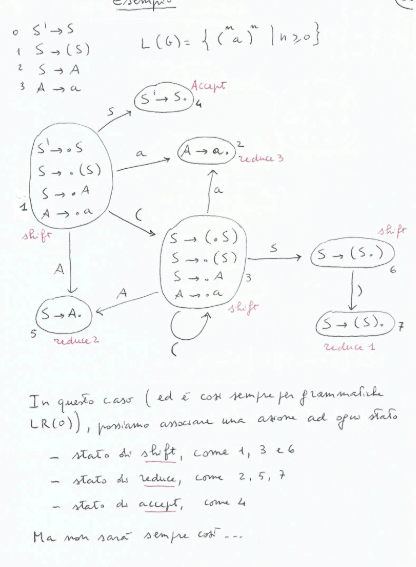 Esempio
0 S' → S
1 S → (S)
2 S → A
3 A → a
L(G) = { (ⁿ a )ⁿ | n ≥ 0 }
S
Accept
S' → S.
4
S' → .S
S → .(S)
S → .A
A → .a
1
shift
a
A → a.
2
reduce 3
(
a
S → (.S)
S → .(S)
S → .A
A → .a
3
shift
(
S
shift
S → (S.)
6
)
S → (S).
7
reduce 1
A
A
S → A.
5
reduce 2
In questo caso (ed è così sempre per grammatiche
LR(0)), possiamo associare una azione ad ogni stato
- stato di shift, come 1, 3 e 6
- stato di reduce, come 2, 5, 7
- stato di accept, come 4
Ma non sarà sempre così...